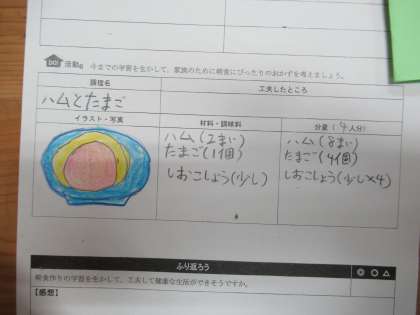 活動2 今までの学習を生かして、家族のために朝食にぴったりのおかずを考えましょう。
調理名
工夫したところ
ハムとたまご
イラスト・写真
材料・調味料
分量(4人分)
ハム(2まい)
たまご(1個)
しおこしょう(少し)
ハム(8まい)
たまご(4個)
しおこしょう(少し×4)
ふり返ろう
◎○△
朝食作りの学習を生かして、工夫して健康な生活ができそうですか。
【感想】